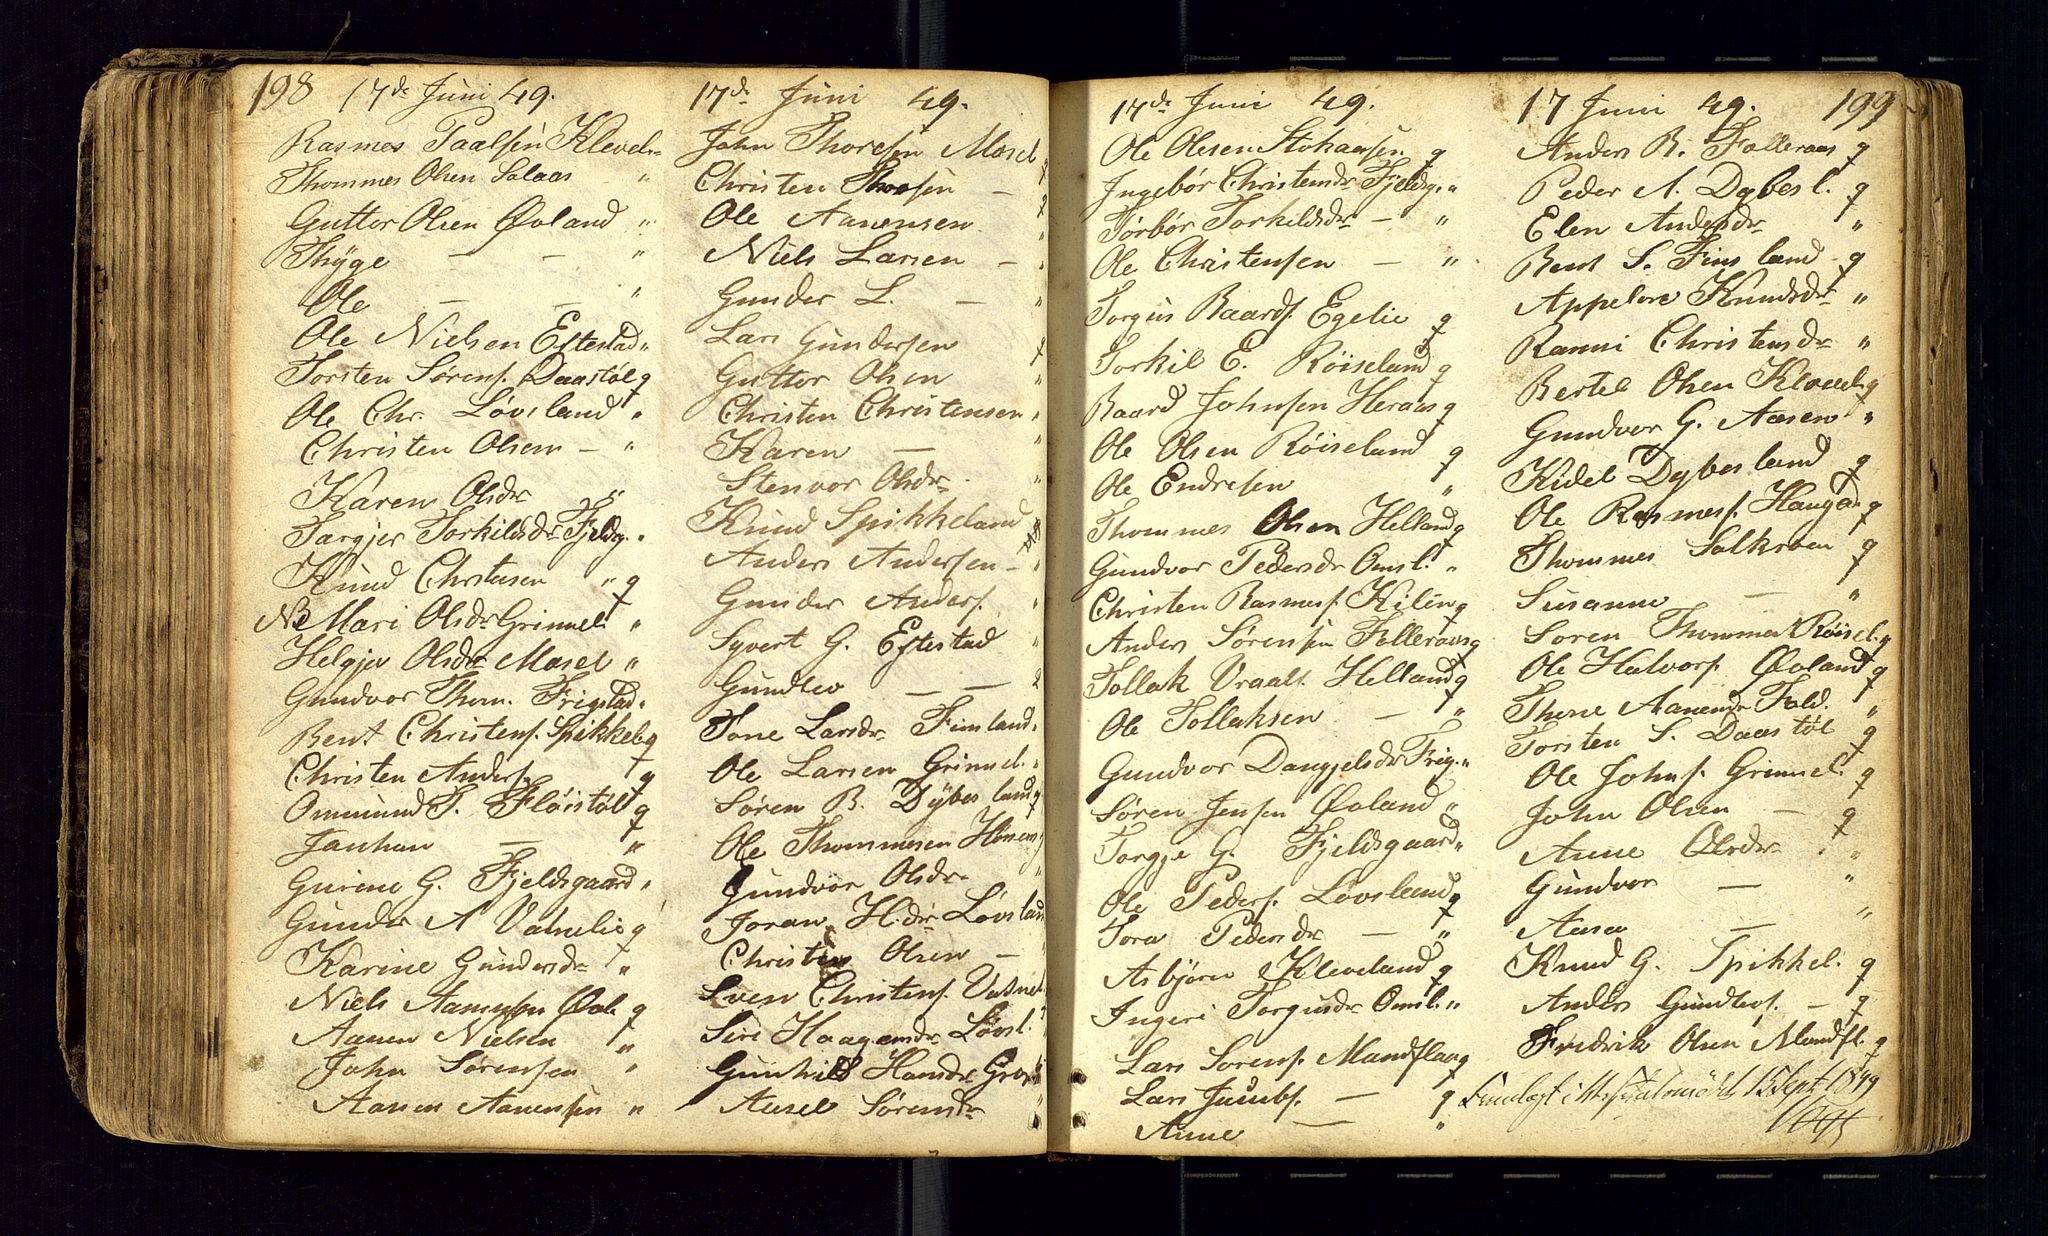 198 17de Juni 49.
Rasmos Paalsen Klevel.
Thommes Olsen Solaas "
Guttor Olsen Øvland "
Thÿge — — "
Ole — — "
Ole Nielsen Eftestad "
Torsten Sørens. Daastøl q
Ole Chr. Løvsland "
Christen Olsen — "
Karen Olsdr "
Targjer Torkildsdr Fjeldg. "
Knud Christensen " q
NB Mari Olsdr Grimel. "
Helgjer Olsdr Mosel "
Gundvor Thom. Frigstad "
Bent Christens. Spikkel q
Christen Anders. q
Ommund T. Fløistøl q
— "
Gurine G. Fjeldsgaard "
Gunder A Vatnelie q
Karine Gundersdr "
Niels Aanensen Øvl. q
Aanen Nielsen "
John Sørensen "
Aanen Aanensen "
17de Juni 49.
John Thorsen Mosel q
Christen Thorsen — q
Ole Aanensen "
Niels Larsen — "
Gunder L. — "
Lars Gundersen q
Guttor Olsen "
Christen Christensen "
Karen — "
Stenvor Olsdr "
Knud Spikkeland
Anders Andersen — "
Gunder Anders. "
Syvert G. Eftestad "
Gundlev — — 2
Tone Larsdr Finsland "
Ole Larsen Grimel. "
Søren B. Dÿbesland q
Ole Thommesen
Gundvor Olsdr "
Joran H.dr Løvsland
Christen Olsen —
Sven Christens. Vatnel
Siri Haagensdr Løvsl.
Gunhild Hansdr
Aasel Sørensdr "
17de Juni 49.
Ole Olesen q
Ingebør Christensdr Fjeldg. "
Torbør Torkildsdr — "
Ole Christensen — "
Torgius Baards. Egelie q
Torkil E. Røiseland q
Baard Johnsen Heraas q
Ole Olsen Røiseland q
Ole Endresen "
Thommes Olsen Helland q
Gundvor Pedersdr Omsl. "
Christen Rasmes. Kilen q
Anders Sørensen Folleraas q
Tollak Vraals. Helland q
Ole Tollaksen — "
Gundvor Dangjelsdr Frig. "
Søren Jensen Øvland "
Torgje G. Fjeldsgaard "
Ole Peders. Løvsland q
Tora Pedersdr — "
Asbjørn Kleveland q
Ingeri Torgiusdr Omsl. "
Lars Sorens. Mandflaa q
Lars Jacobs. — q
Anne — "
17 Juni 49. 199
Anders B. Folleraas q
Peder A. Dybesl. q
Elen Andersdr "
Bent S. Finsland q
Appelone Knudsdr "
Ranni Christensdr "
Bertel Olsen Klevel. q
Gundvor G. Aasen "
Kidel Dybesland q
Ole Rasmes. Haugad. q
Thommes q
Susanne — "
Soren Thommes. Røisel. q
Ole Halvors. Øvland q
Thone Aanensdr Fold. "
Torsten S. Daastøl q
Ole Johns. Grimel. q
John Olsen — q
Anne Olsdr "
Gundvor — "
Aasa — "
Knud G. Spikkel. q
Anders Gundlevs. — q
Fredrik Olsen Mandfl. q
15 Sept. 1849